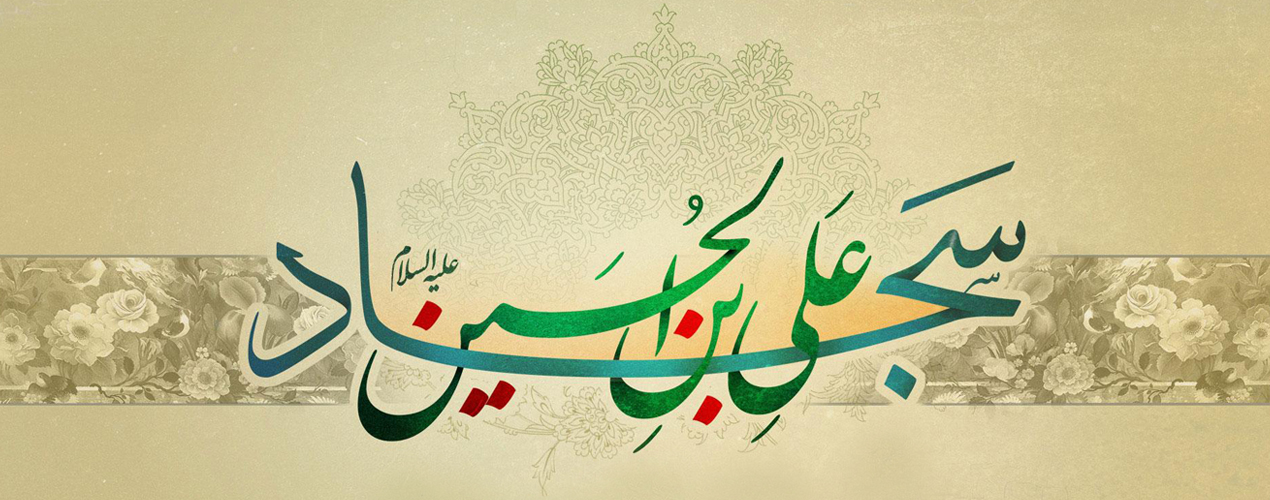 سجاد
علی بن الحسین
علیه السلام